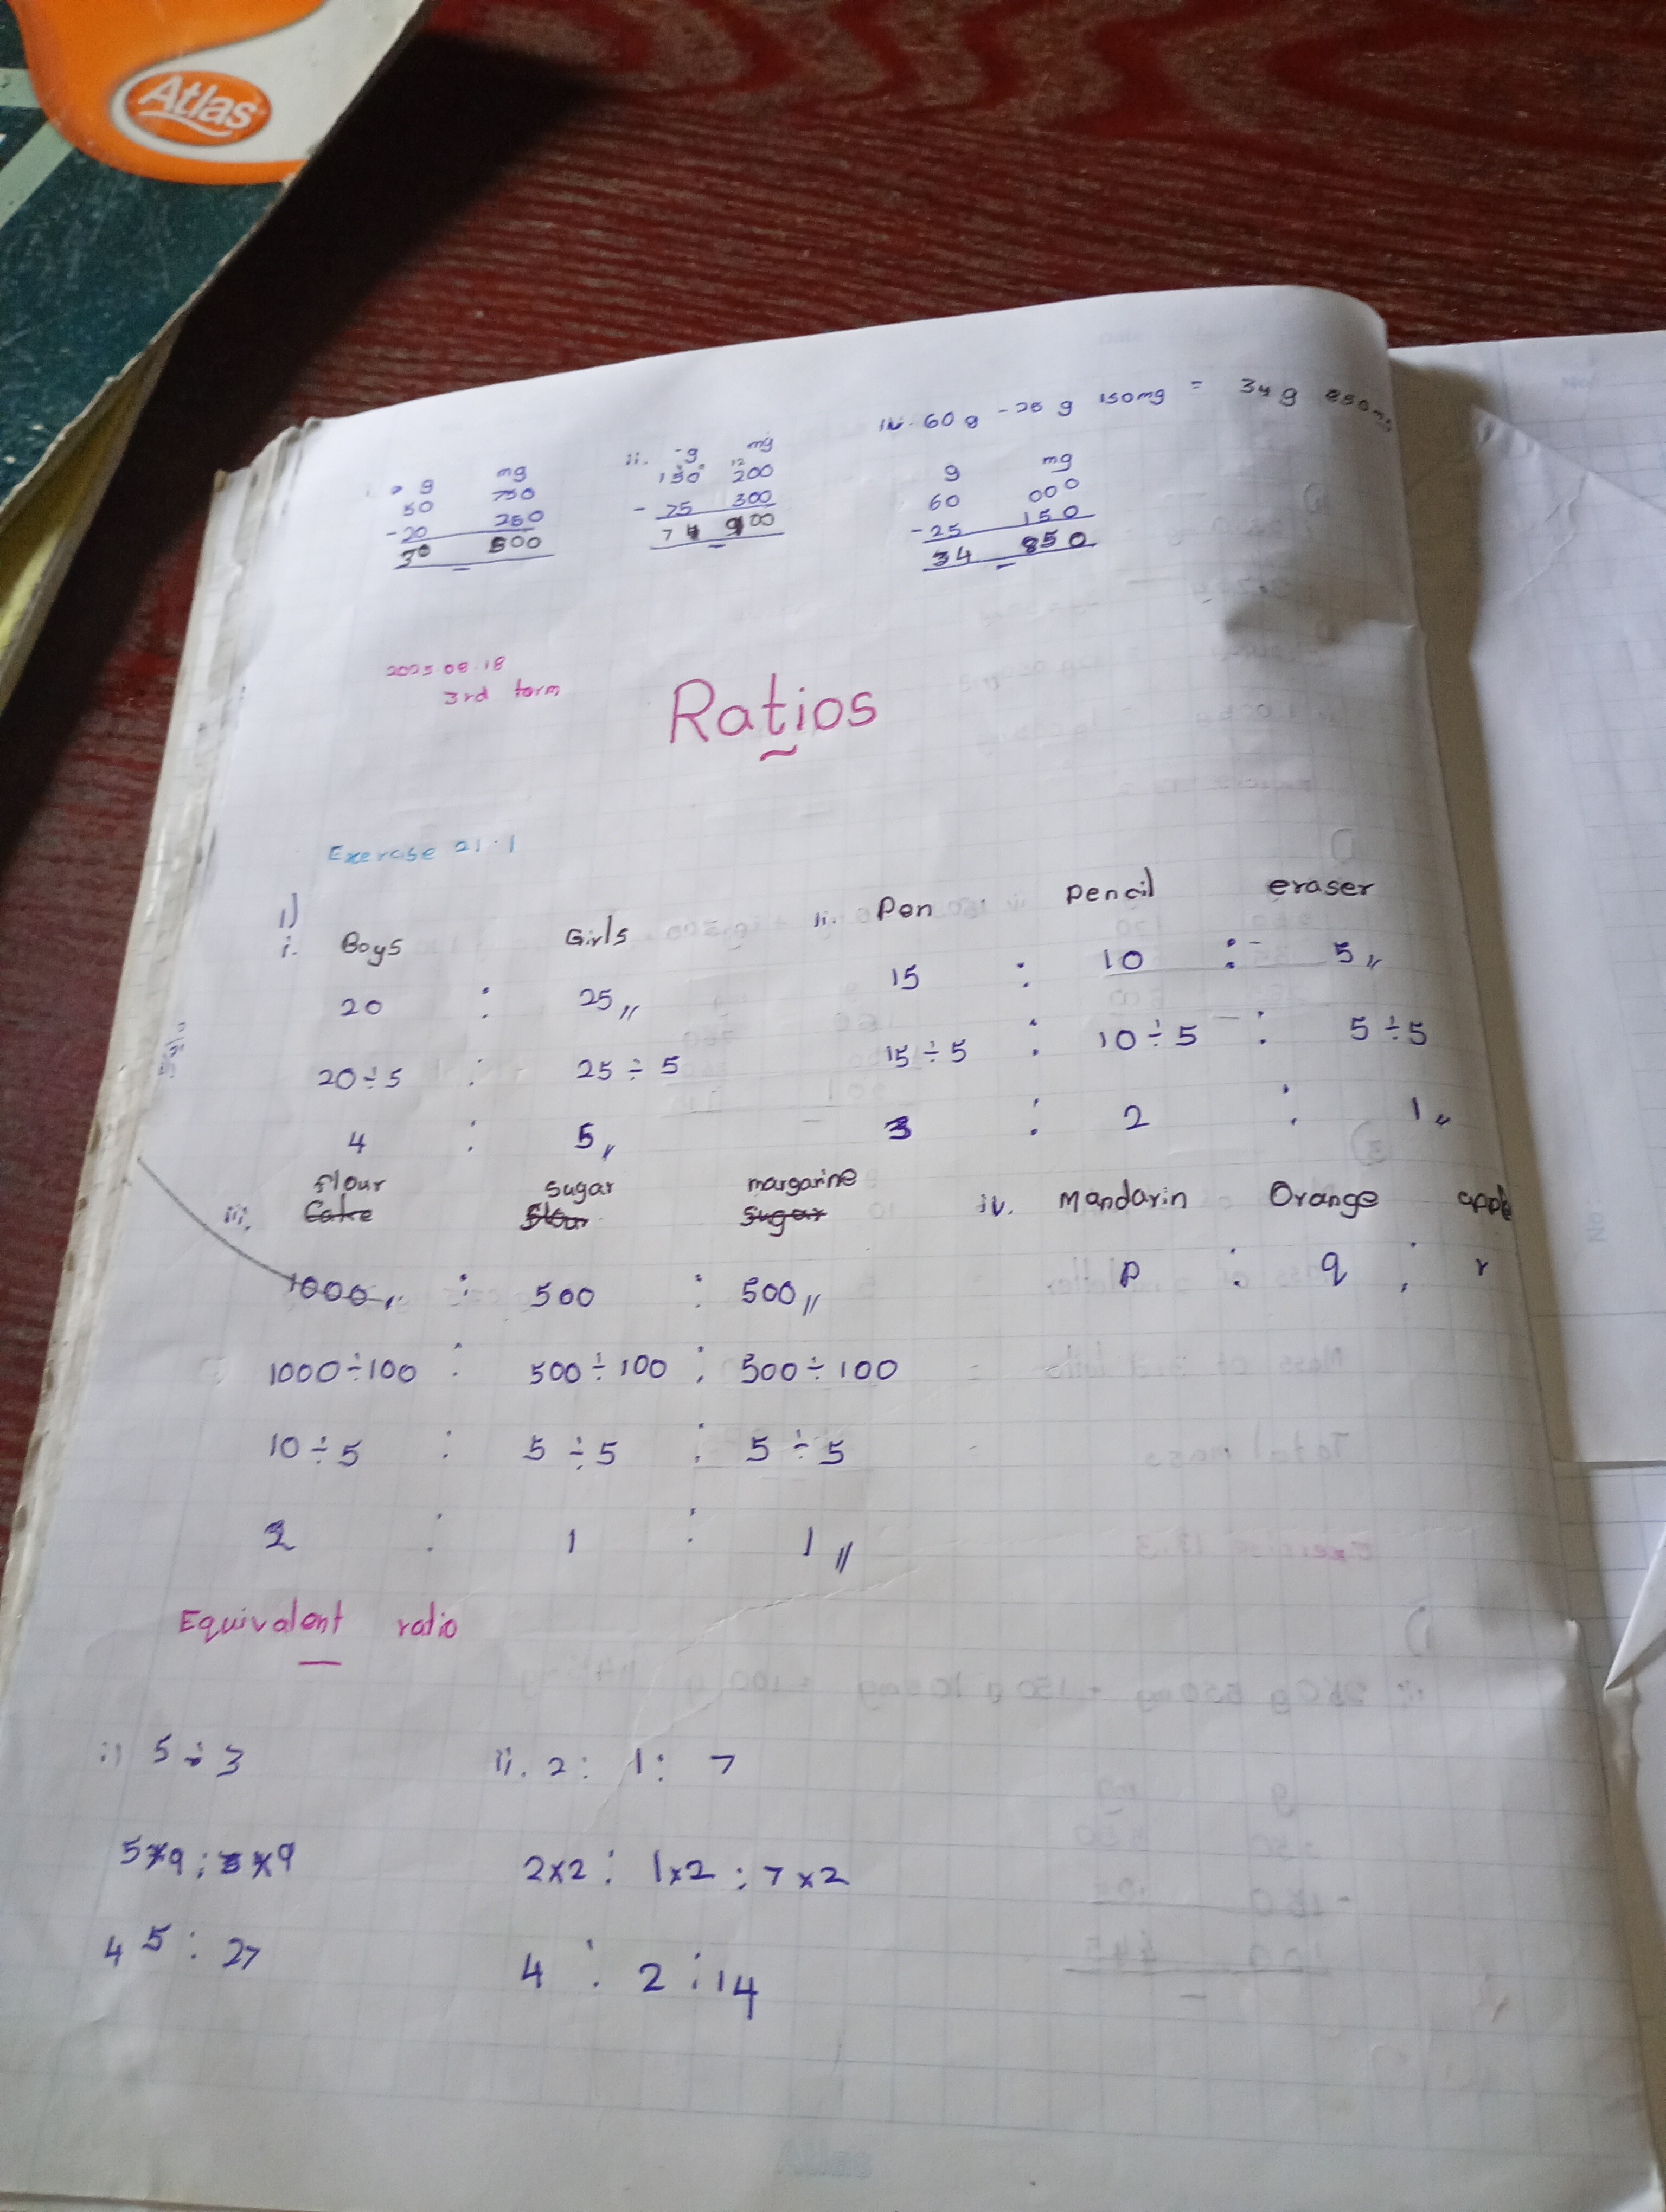 Atlas
iv. 60 g - 25 g 150mg = 34 g 850mg
g mg
50 750
-20 250
30 500
ii. g mg
150 200
- 75 300
74 900
g mg
60 000
-25 150
34 850
2025.08.18
3rd term
Ratios
Exercise 21.1
1)
i. Boys Girls
20 : 25
20÷5 : 25÷5
4 : 5
ii. Pen Pencil eraser
15 : 10 : 5
15÷5 : 10÷5 : 5÷5
3 : 2 : 1
flour sugar margarine
iii. Cake Flour Sugar
1000 : 500 : 500
1000÷100 : 500÷100 : 500÷100
10÷5 : 5÷5 : 5÷5
2 : 1 : 1
iv. Mandarin Orange apple
p : q : r
Equivalent ratio
i) 5÷3
5×9 : 3×9
45 : 27
ii. 2 : 1 : 7
2×2 : 1×2 : 7×2
4 : 2 : 14